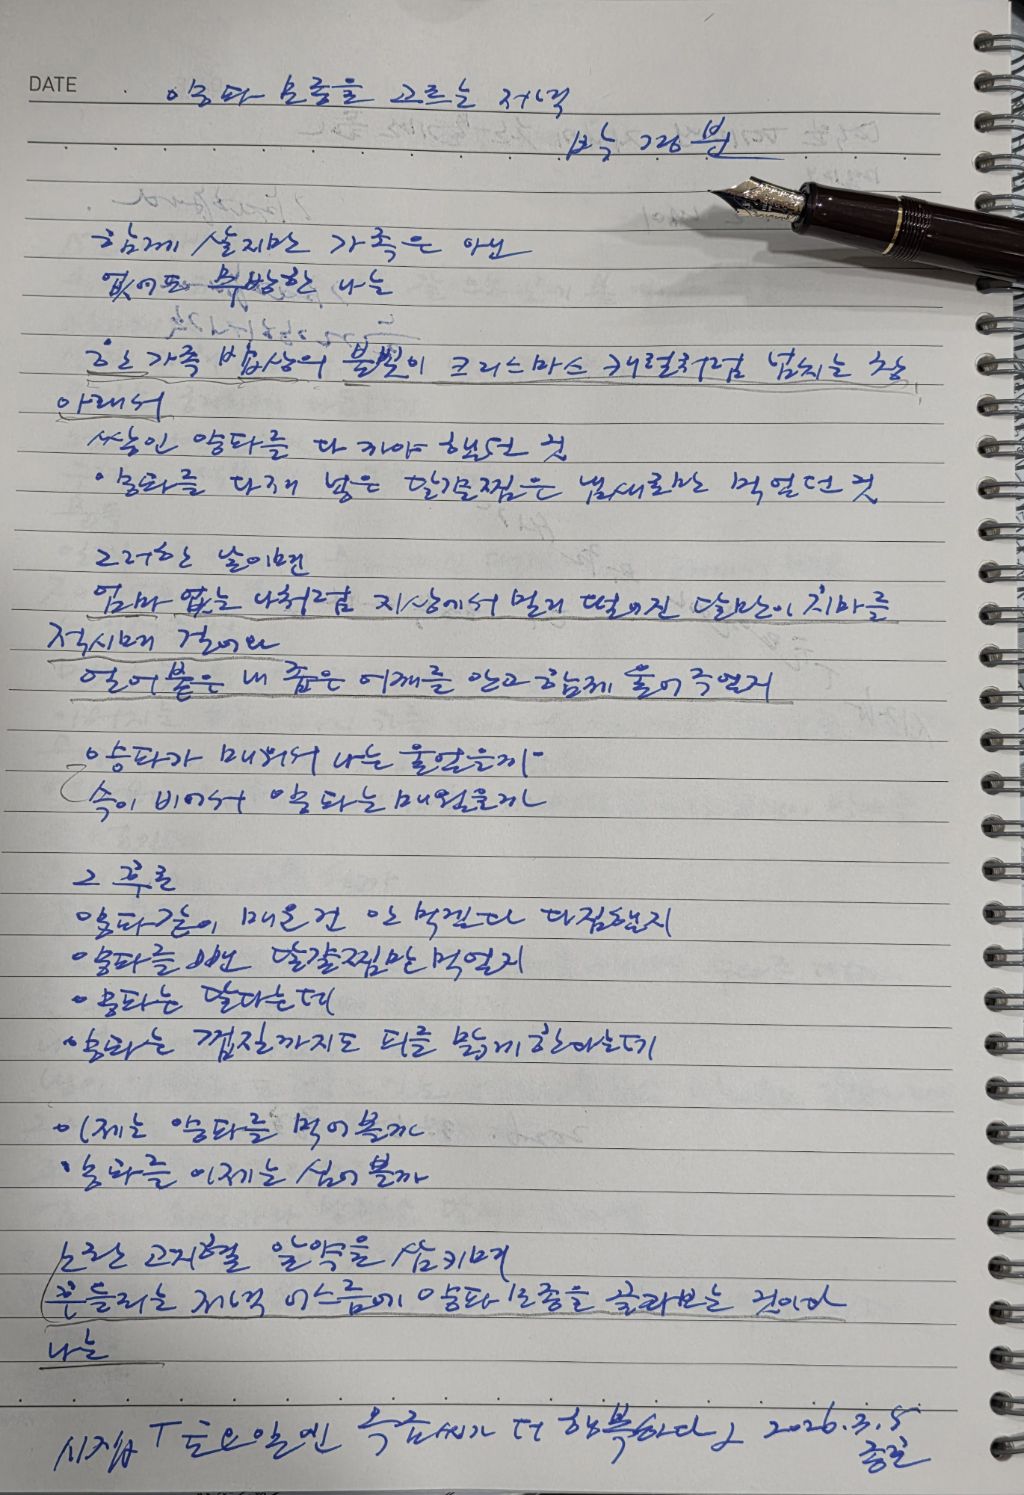 DATE
양파 모종을 고르는 저녁
박경분
함께 살지만 가족은 아닌
없어도 무방한 나는
한 가족 밥상의 불빛이 크리스마스 캐럴처럼 넘치는 창
아래서
쌓인 양파를 다 까야 했던 것
양파를 다져 넣은 달걀찜은 냄새로만 먹었던 것
그러한 날이면
엄마 없는 나처럼 지상에서 멀리 떨어진 달만이 치마를
적시며 걸어와
얼어붙은 내 좁은 어깨를 안고 함께 울어 주었지
양파가 매워서 나는 울었을까
속이 비어서 양파는 매웠을까
그 후론
양파같이 매운 건 안 먹겠다 다짐했지
양파를 뺀 달걀찜만 먹었지
양파는 달다는데
양파는 껍질까지도 피를 맑게 한다는데
이제는 양파를 먹어볼까
양파를 이제는 심어볼까
노란 고지혈 알약을 삼키며
흔들리는 저녁 어스름에 양파 모종을 골라보는 것이다
나는
시집 「토요일엔 옥금씨가 더 행복하다」 2026.3.5